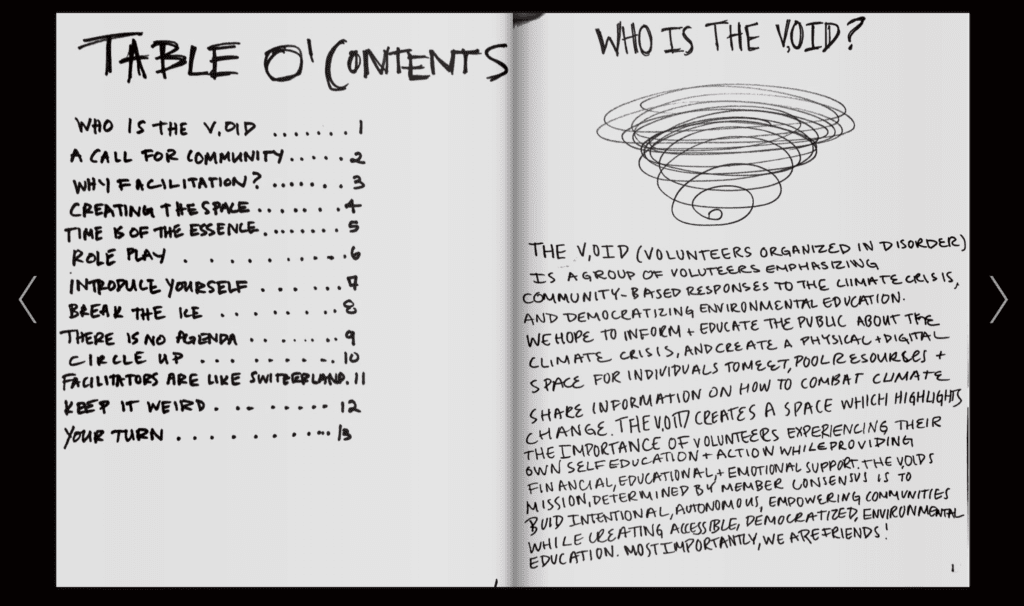 TABLE O' CONTENTS
WHO IS THE V,OID ....... 1
A CALL FOR COMMUNITY..... 2
WHY FACILITATION? ....... 3
CREATING THE SPACE ....... 4
TIME IS OF THE ESSENCE........ 5
ROLE PLAY . . . . . . . . . . . 6
INTRODUCE YOURSELF . . . . . . . 7
BREAK THE ICE . . . . . . . . . 8
THERE IS NO AGENDA . . . . . . . 9
CIRCLE UP . . . . . . . . . 10
FACILITATORS ARE LIKE SWITZERLAND. 11
KEEP IT WEIRD . . . . . . . . . 12
YOUR TURN . . . . . . . . . . . 13
WHO IS THE V,OID?
THE V,OID (VOLUNTEERS ORGANIZED IN DISORDER)
IS A GROUP OF VOLUTEERS EMPHASIZING
COMMUNITY-BASED RESPONSES TO THE CLIMATE CRISIS,
AND DEMOCRATIZING ENVIRONMENTAL EDUCATION.
WE HOPE TO INFORM + EDUCATE THE PUBLIC ABOUT THE
CLIMATE CRISIS, AND CREATE A PHYSICAL + DIGITAL
SPACE FOR INDIVIDUALS TO MEET, POOL RESOURCES +
SHARE INFORMATION ON HOW TO COMBAT CLIMATE
CHANGE. THE V,OID CREATES A SPACE WHICH HIGHLIGHTS
THE IMPORTANCE OF VOLUNTEERS EXPERIENCING THEIR
OWN SELF EDUCATION + ACTION WHILE PROVIDING
FINANCIAL, EDUCATIONAL, + EMOTIONAL SUPPORT. THE V,OIDS
MISSION, DETERMINED BY MEMBER CONSENSUS IS TO
BUID INTENTIONAL, AUTONOMOUS, EMPOWERING COMMUNITIES
WHILE CREATING ACCESSIBLE, DEMOCRATIZED, ENVIRONMENTAL
EDUCATION. MOST IMPORTANTLY, WE ARE FRIENDS!
1